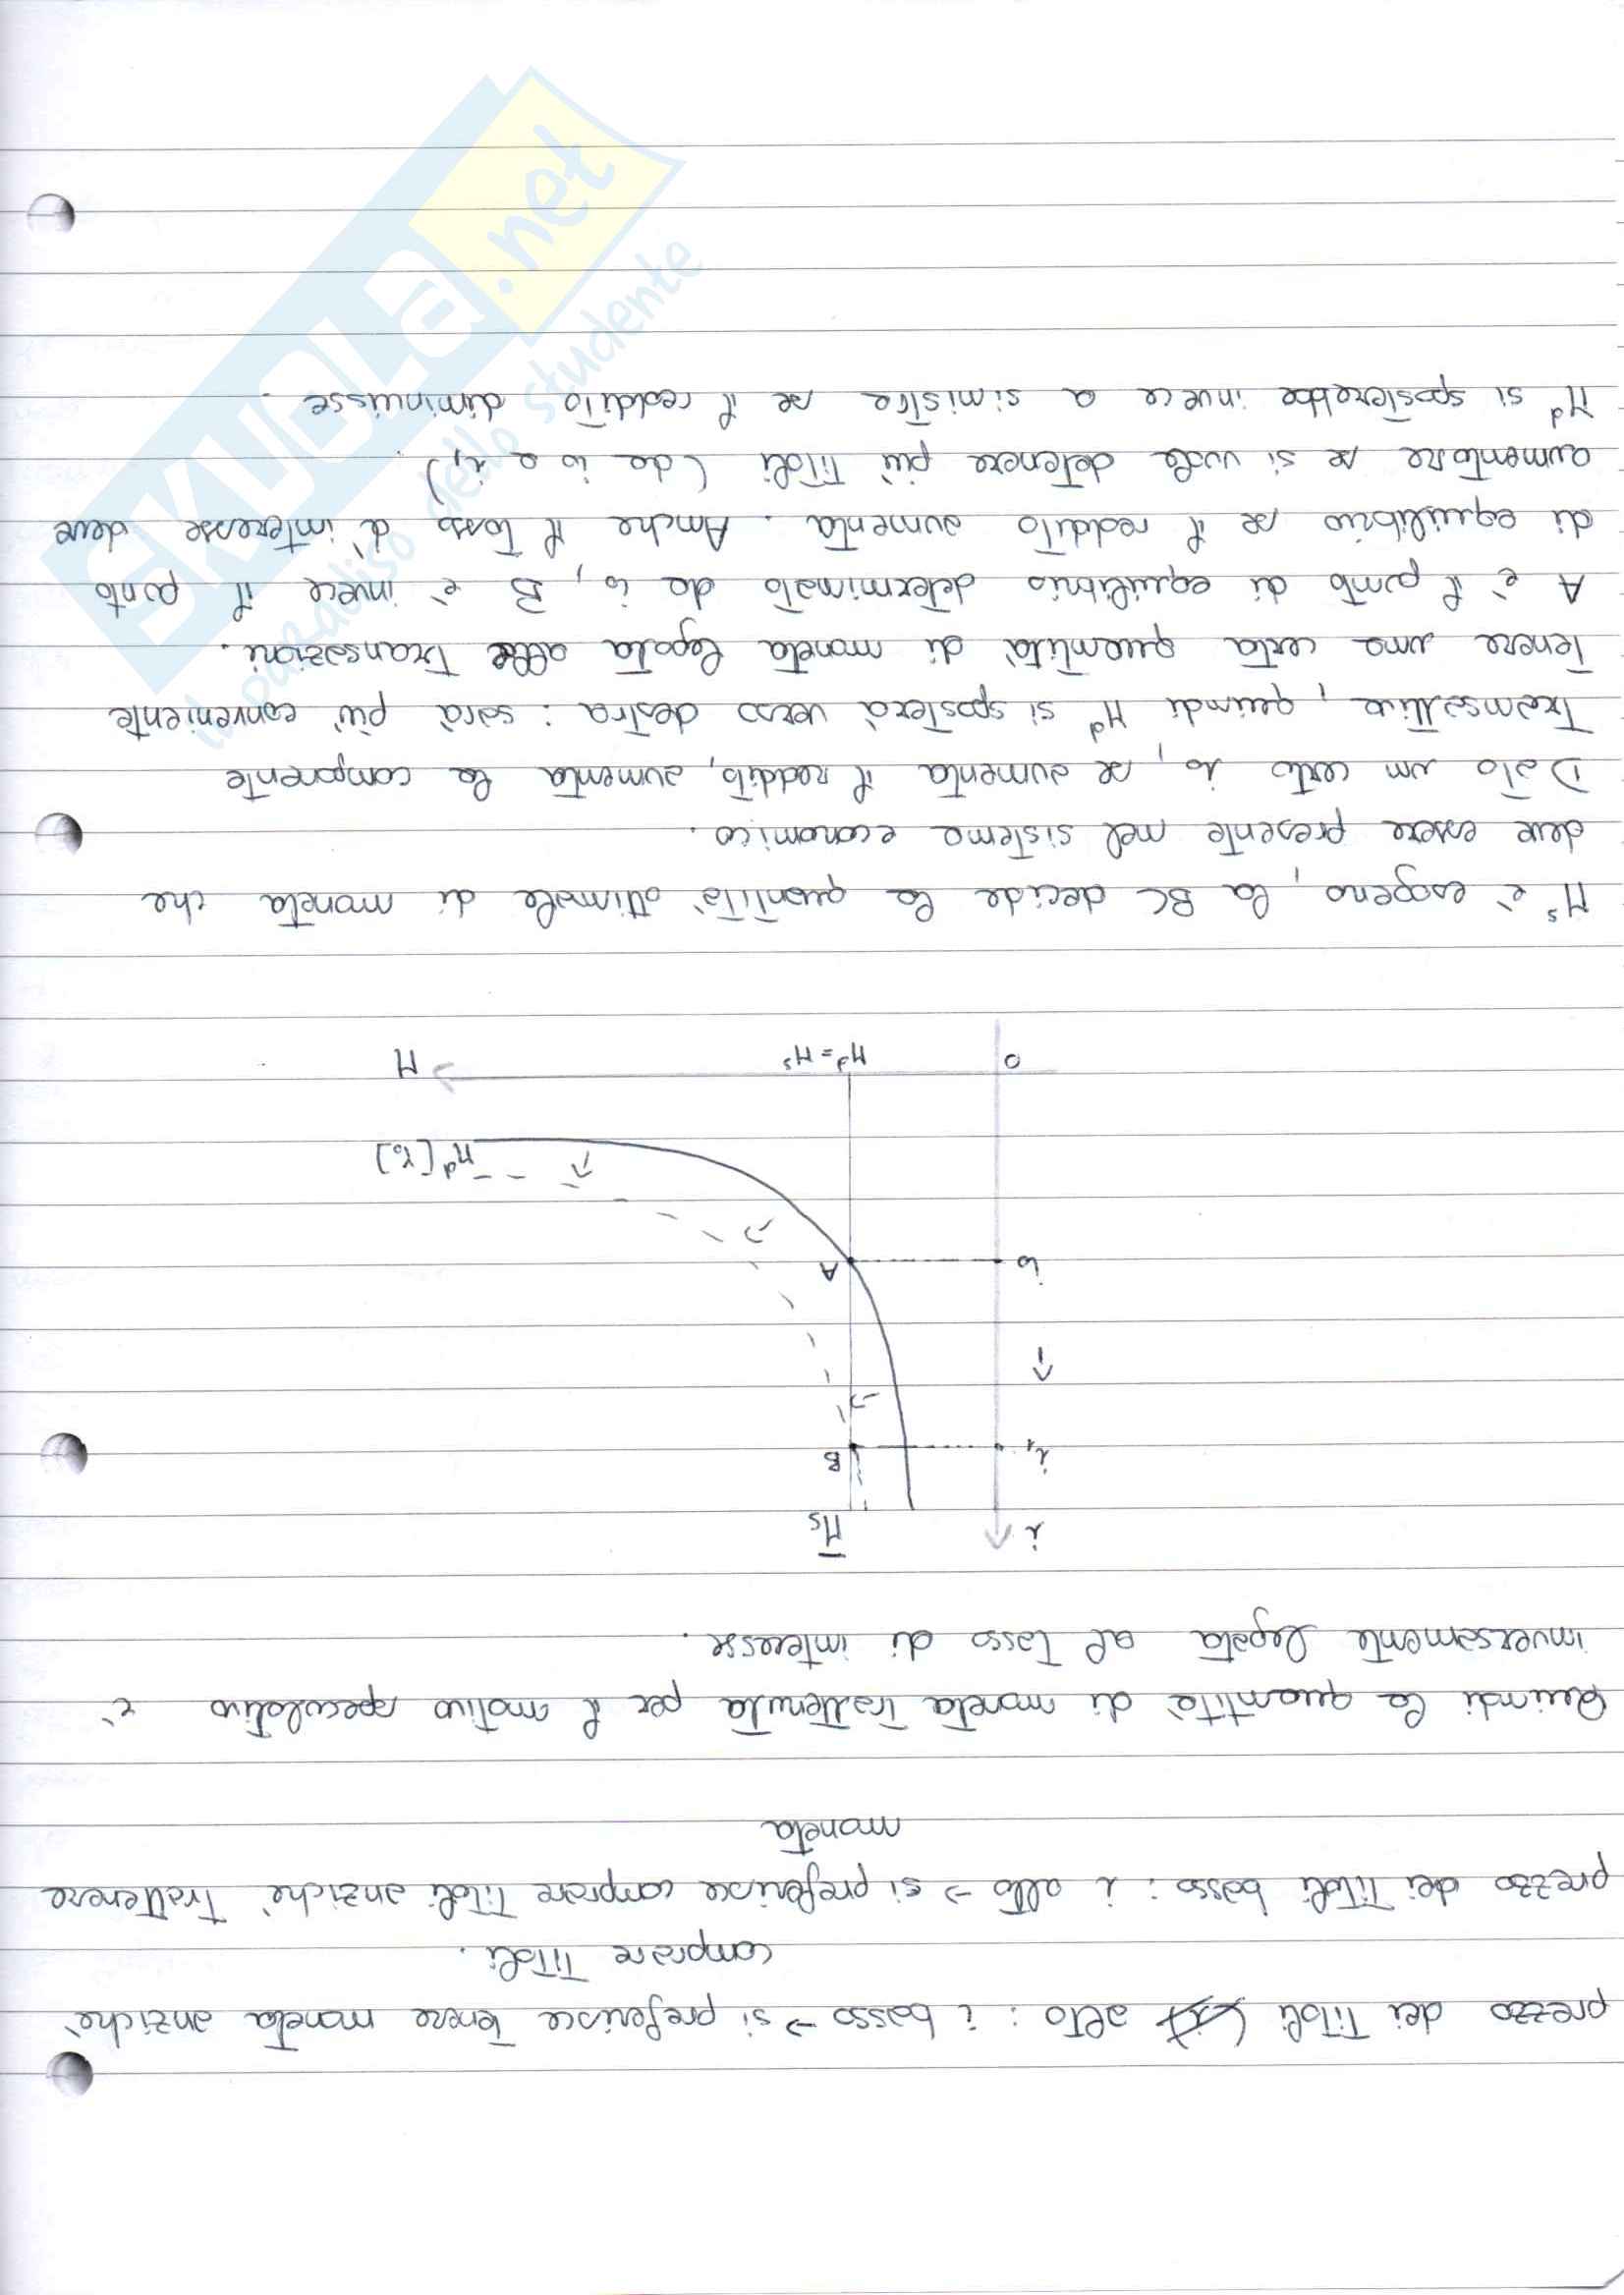 prezzo dei Titoli alto : i basso → si preferisce Tenere moneta anziché
comprare Titoli.
prezzo dei Titoli basso : i alto → si preferisce comprare Titoli anziché Trattenere
moneta
Quindi la quantità di moneta Trattenuta per il motivo speculativo è
inversamente legata al Tasso di interesse.
i
M̄s
i₁
B
i₀
A
Mᵈ (Y₀)
0
Mᵈ = Mˢ
M
Mˢ è esogeno, la BC decide la quantità ottimale di moneta che
deve essere presente nel sistema economico.
Dato un certo i₀, se aumenta il reddito, aumenta la componente
Transattiva, quindi Mᵈ si sposterà verso destra : sarà più conveniente
Tenere una certa quantità di moneta legata alle Transazioni.
A è il punto di equilibrio determinato da i₀, B è invece il punto
di equilibrio se il reddito aumenta. Anche il Tasso d'interesse deve
aumentare se si vuole detenere più Titoli (da i₀ a i₁).
Mᵈ si sposterebbe invece a sinistra se il reddito diminuisse.
SKUOLA.net
il paradiso dello studente